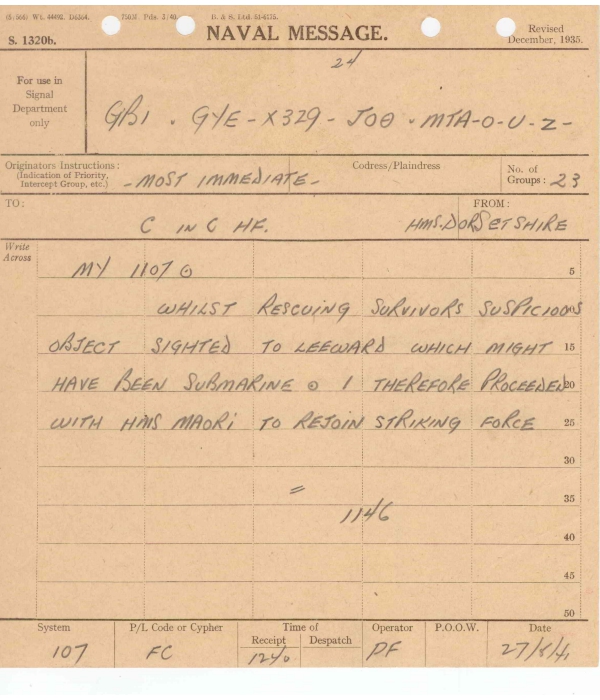 (8/566) Wt. 44492. D6554. 750M. Pds. 3/40. B. & S. Ltd. 51-6775.
S. 1320b. NAVAL MESSAGE. Revised December, 1935.
24
For use in Signal Department only
GBI . GYE - X329 - J00 . MTA-O-U-Z-
Originators Instructions: Codress/Plaindress No. of
(Indication of Priority, Intercept Group, etc.) - MOST IMMEDIATE - Groups: 23
TO: FROM:
C IN C HF. HMS. DORSETSHIRE
Write
Across
MY 1107 ⊙ 5
WHILST RESCUING SURVIVORS SUSPICIOUS
OBJECT SIGHTED TO LEEWARD WHICH MIGHT 15
HAVE BEEN SUBMARINE ⊙ I THEREFORE PROCEEDED 20
WITH HMS MAORI TO REJOIN STRIKING FORCE 25
30
=
35
1146
40
45
50
System P/L Code or Cypher Time of Operator P.O.O.W. Date
Receipt Despatch
107 FC 1240 PF 27/5/41